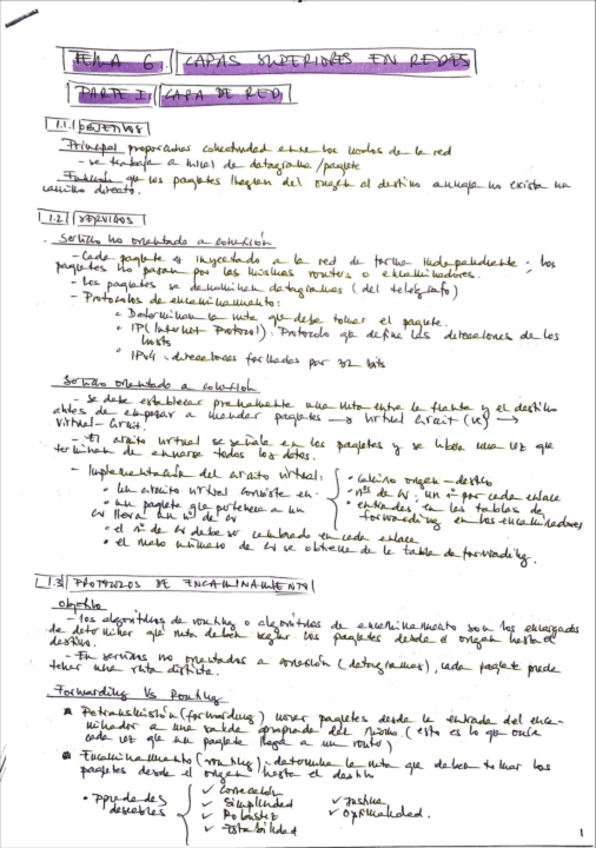 TEMA 6. CAPAS SUPERIORES EN REDES
PARTE I: CAPA DE RED
1.1. OBJETIVOS
Principal proporcionar conectividad entre los nodos de la red
- se trabaja a nivel de datagrama/paquete
Función que los paquetes lleguen del origen al destino aunque no exista un
camino directo.
1.2 SERVICIOS
Servicio no orientado a conexión
- Cada paquete es inyectado a la red de forma independiente; los
paquetes no pasan por los mismos routers o encaminadores.
- Los paquetes se denominan datagramas (del telégrafo)
- Protocolos de encaminamiento:
• Determinan la ruta que debe tomar el paquete.
• IP (Internet Protocol): Protocolo que define las direcciones de los
hosts
• IPv4: direcciones formadas por 32 bits
Servicio orientado a conexión
- Se debe establecer previamente una ruta entre la fuente y el destino
antes de empezar a mandar paquetes → Virtual Circuit (VC) →
Virtual-Circuit.
- El circuito virtual se señala en los paquetes y se libera una vez que
terminan de enviarse todos los datos.
- Implementación del circuito virtual:
• Un circuito virtual consiste en:
• camino origen - destino
• nos de cv, un nº por cada enlace
• entradas en las tablas de
forwarding en los encaminadores
• un paquete que pertenece a un
cv lleva un nº de cv
• el nº de cv debe ser cambiado en cada enlace
• el nuevo número de cv se obtiene de la tabla de forwarding.
1.3 PROTOCOLOS DE ENCAMINAMIENTO
Objetivo
- Los algoritmos de routing o algoritmos de encaminamiento son los encargados
de determinar que ruta deben seguir los paquetes desde el origen hasta el
destino.
- En servicios no orientados a conexión (datagramas), cada paquete puede
tener una ruta distinta.
Forwarding Vs Routing
Retransmisión (forwarding) mover paquetes desde la entrada del enca-
minador a una salida apropiada del mismo. (esto es lo que ocurre
cada vez que un paquete llega a un router)
Encaminamiento (routing): determina la ruta que deben tomar los
paquetes desde el origen hasta el destino
• Propiedades
deseables
✓ Corrección
✓ Simplicidad
✓ Robustez
✓ Estabilidad
✓ Justicia
✓ Optimalidad.
1